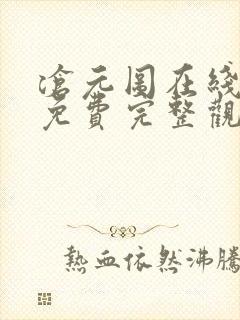 滄元图在綫
免費完整觀
熱血依然沸騰